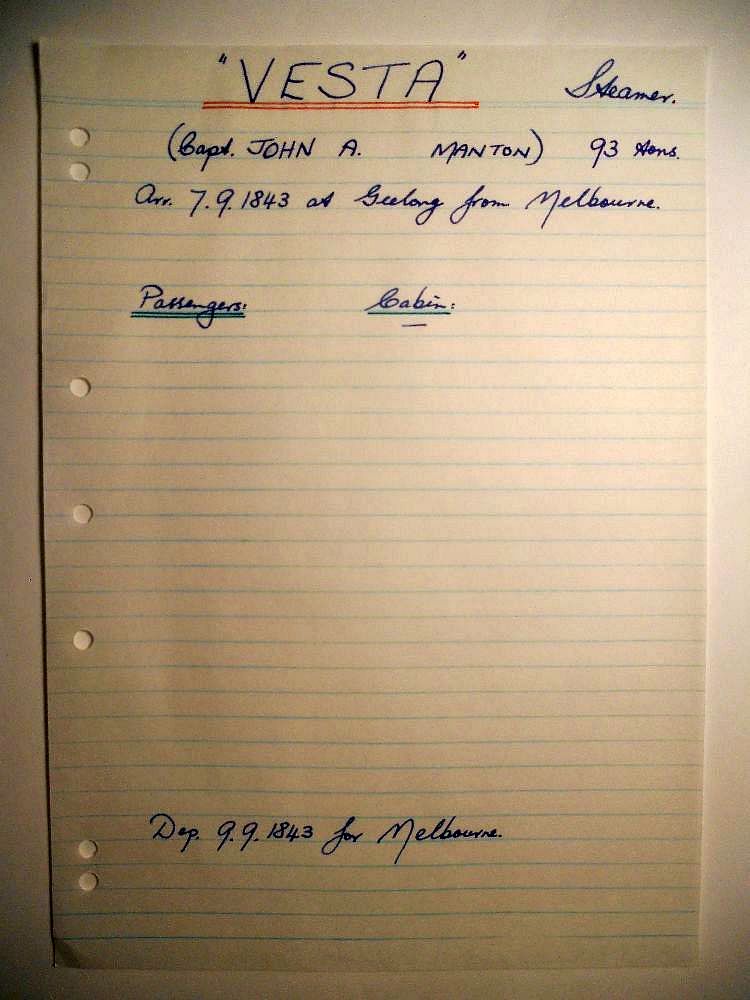 "VESTA" Steamer.
(Capt. JOHN A. MANTON) 93 tons.
Arr. 7.9.1843 at Geelong from Melbourne.
Passengers: Cabin:
—
Dep. 9.9.1843 for Melbourne.